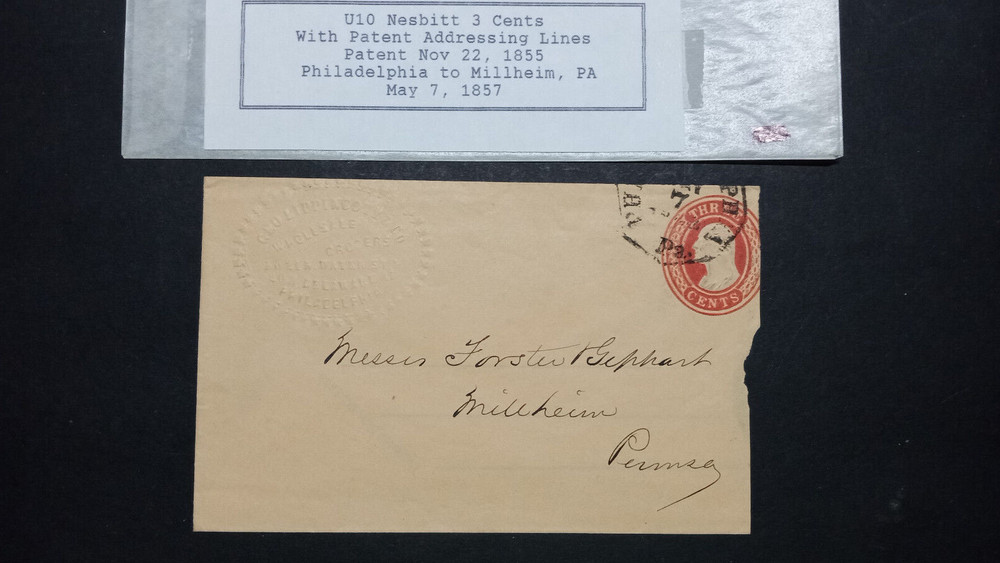 U10 Nesbitt 3 Cents
With Patent Addressing Lines
Patent Nov 22, 1855
Philadelphia to Millheim, PA
May 7, 1857
7
Pa.
THREE
CENTS
GROCERS
PHILADELPHIA
Messrs Forster & Gephart
Millheim
Pennsa